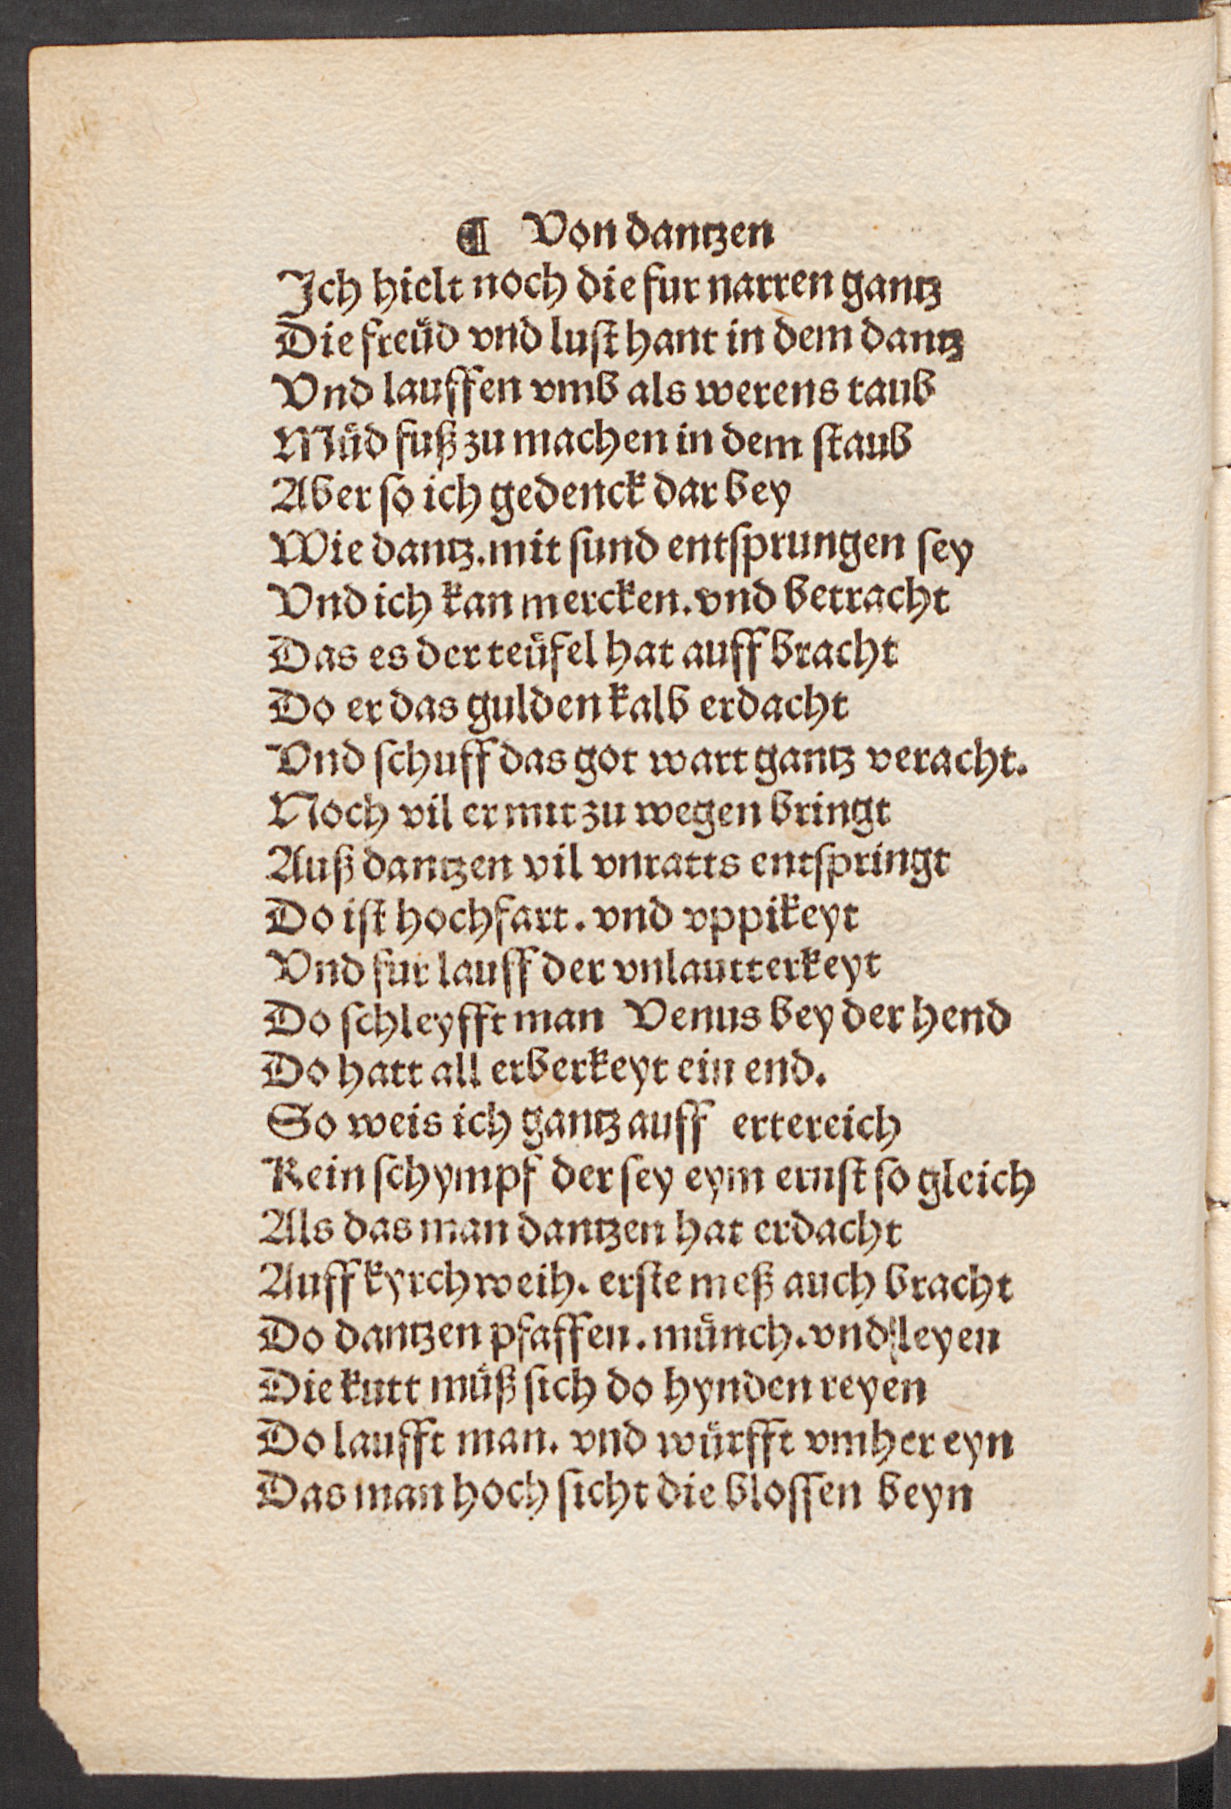 ¶ Von dantzen
Ich hielt noch die fur narren gantz
Die freüd vnd lust hant in dem dantz
Vnd lauffen vmb als werens taub
Müd fuß zu machen in dem staub
Aber so ich gedenck dar bey
Wie dantz. mit sund entsprungen sey
Vnd ich kan mercken. vnd betracht
Das es der teüfel hat auff bracht
Do er das gulden kalb erdacht
Vnd schuff das got wart gantz veracht.
Noch vil er mit zu wegen bringt
Auß dantzen vil vnratts entspringt
Do ist hochfart. vnd vppikeyt
Vnd fur lauff der vnlautterkeyt
Do schleyfft man Venus bey der hend
Do hatt all erberkeyt ein end.
So weis ich gantz auff ertereich
Kein schympf der sey eym ernst so gleich
Als das man dantzen hat erdacht
Auff kyrchweih. erste meß auch bracht
Do dantzen pfaffen. münch. vnd leyen
Die kutt müß sich do hynden reyen
Do laufft man. vnd würfft vmher eyn
Das man hoch sicht die blossen beyn